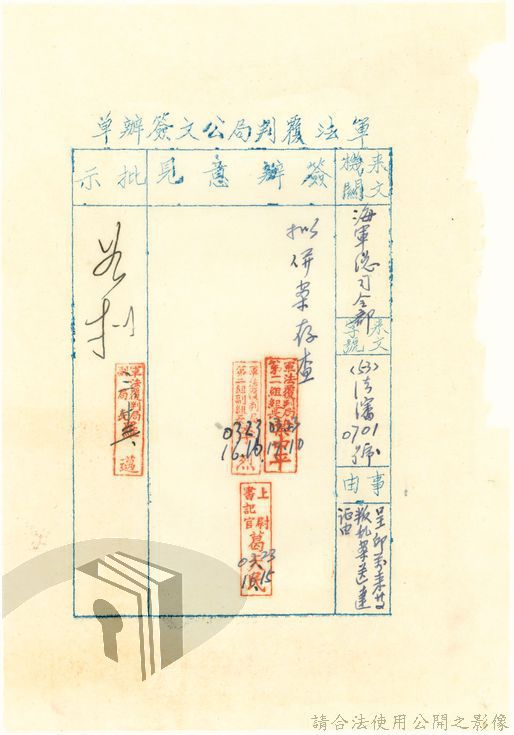 軍法覆判局公文簽辦單
来文機關
海軍總司令部
来文字號
(53)法審
0701號
事由
呈印
叛乱案送達
証由
簽辦意見
拟併案存查
軍法覆判局
第二組組長
平
0323
軍法覆判局
第二組副組長
烈
0323
16.10
上尉書記官 葛天民
批示
如拟
軍法覆判局
請合法使用公開之影像